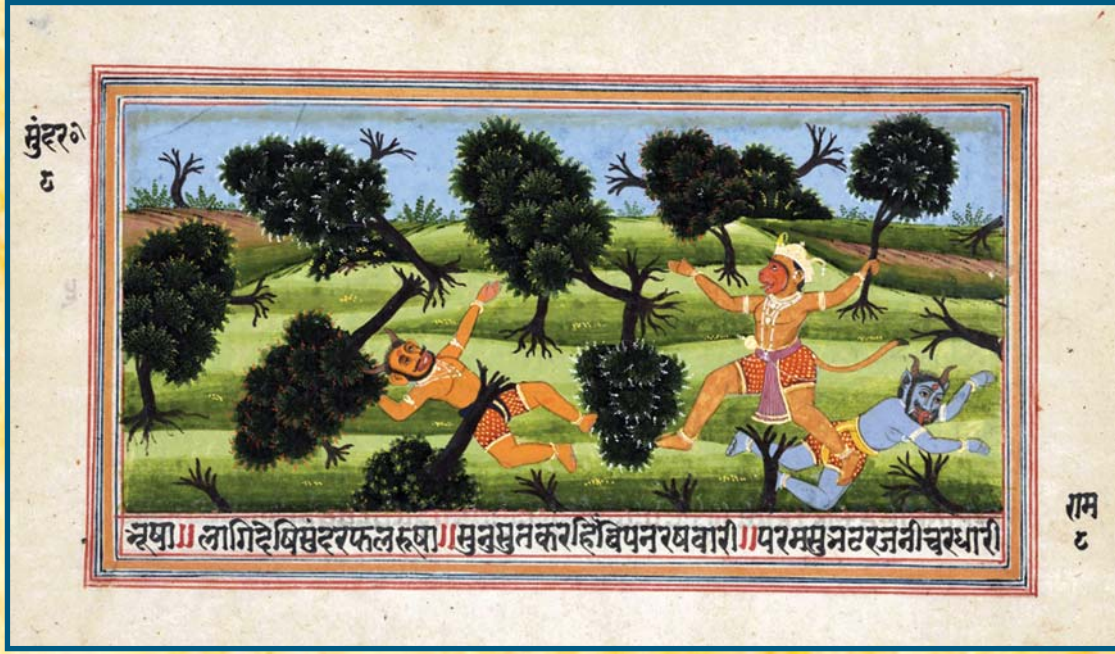 सुंदर०
८
भूषा॥लागिदेषिसुंदरफलरूषा॥सुनुसुतकरहिंविपनरषवारी॥परमसुभटरजनीचरधारी
राम
८